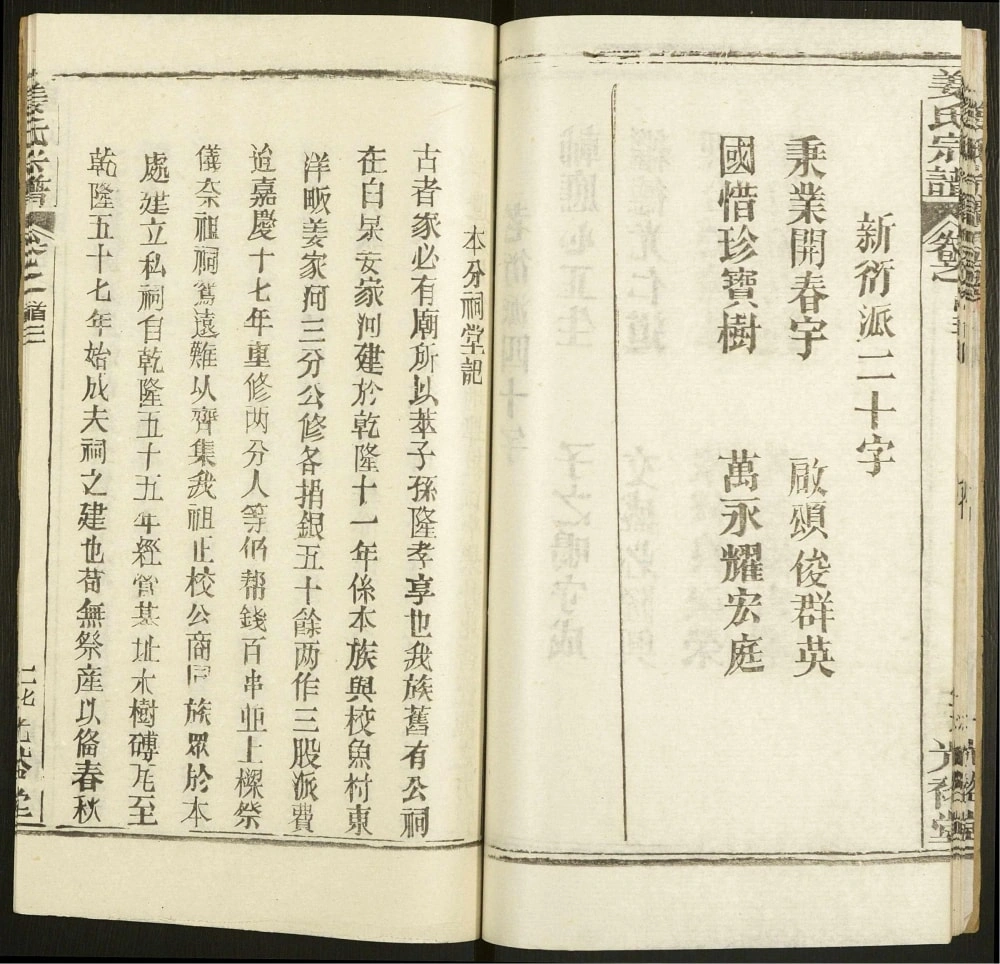 姜氏宗譜
卷之
新衍派二十字
秉業開春宇 啟頌俊群英
國惜珍寶樹 萬永耀宏庭
本分祠堂記
古者家必有廟所以萃子孫隆孝享也我族舊有公祠
在白杲安家河建於乾隆十一年係本族與校魚村東
洋畈姜家河三分公修各捐銀五十餘两作三股派費
迨嘉慶十七年重修两分人等仍帮錢百串並上樑祭
儀奈祖祠寫遠難以齊集我祖正校公商同族眾於本
處建立私祠自乾隆五十五年經營基址木樹磚瓦至
乾隆五十七年始成夫祠之建也苟無祭産以俻春秋
姜氏宗譜
卷之二首三